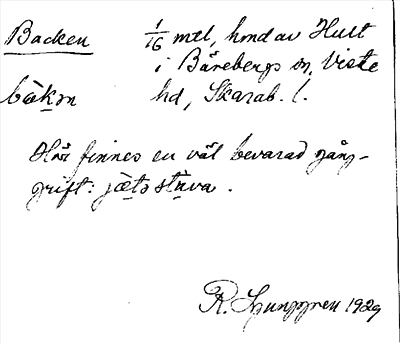 Backen 1/16 mtl, hmd av Hult
i Bärebergs sn, Viste
bàkən hd, Skarab. l.
Här finnes en väl bevarad gång-
grift: jætəstùva.
R. Ljunggren 1929